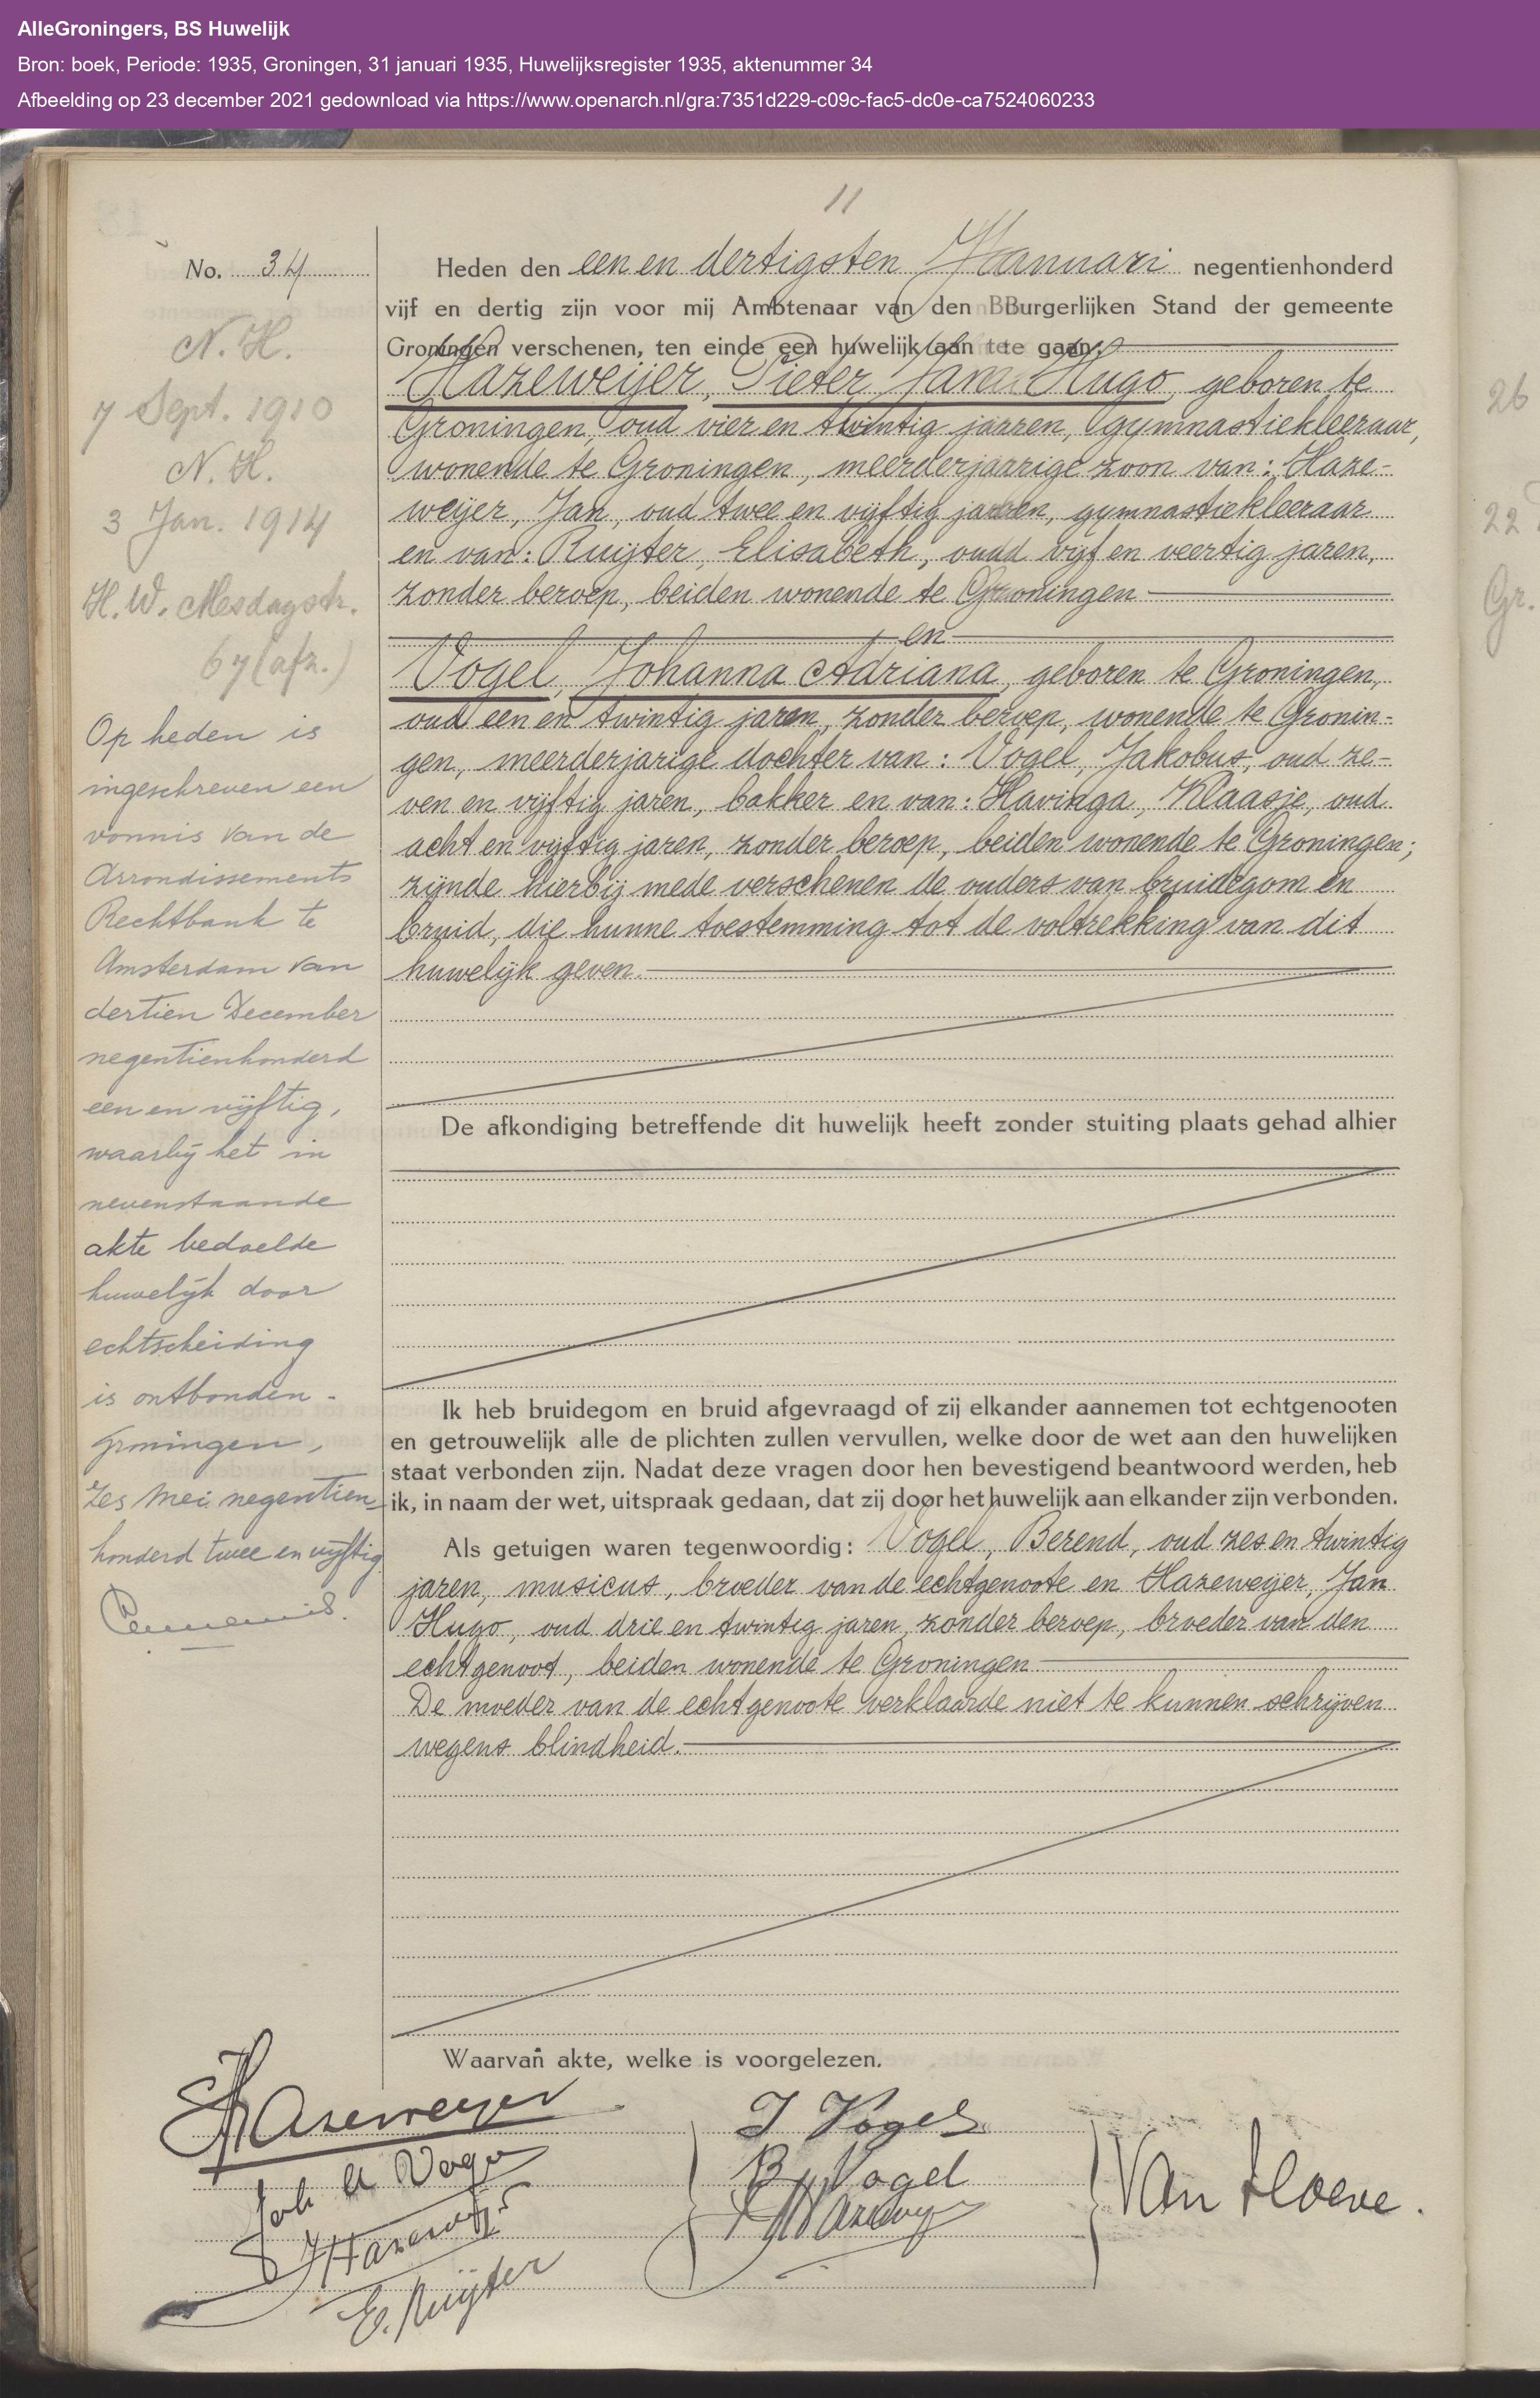 AlleGroningers, BS Huwelijk
Bron: boek, Periode: 1935, Groningen, 31 januari 1935, Huwelijksregister 1935, aktenummer 34
Afbeelding op 23 december 2021 gedownload via https://www.openarch.nl/gra:7351d229-c09c-fac5-dc0e-ca7524060233
11
No. 34
N. H.
7 Sept. 1910
N. H.
3 Jan. 1914
H. W. Mesdagstr.
67 (afz.)
Op heden is
ingeschreven een
vonnis van de
Arrondissements
Rechtbank te
Amsterdam van
dertien December
negentienhonderd
een en vijftig,
waarbij het in
nevenstaande
akte bedoelde
huwelijk door
echtscheiding
is ontbonden.
Groningen,
zes Mei negentien
honderd twee en vijftig
Heden den een en dertigsten Januari negentienhonderd
vijf en dertig zijn voor mij Ambtenaar van den Burgerlijken Stand der gemeente
Groningen verschenen, ten einde een huwelijk aan te gaan:
Hazeweijer, Pieter Jan Hugo, geboren te
Groningen, oud vier en twintig jaren, gymnastiekleeraar,
wonende te Groningen, meerderjarige zoon van: Haze-
weijer, Jan, oud twee en vijftig jaren, gymnastiekleeraar
en van: Ruijter, Elisabeth, oud vijf en veertig jaren,
zonder beroep, beiden wonende te Groningen
en
Vogel, Johanna Adriana, geboren te Groningen,
oud een en twintig jaren, zonder beroep, wonende te Gronin-
gen, meerderjarige dochter van: Vogel, Jakobus, oud ze-
ven en vijftig jaren, bakker en van: Havinga, Klaasje, oud
acht en vijftig jaren, zonder beroep, beiden wonende te Groningen;
zijnde hierbij mede verschenen de ouders van bruidegom en
bruid, die hunne toestemming tot de voltrekking van dit
huwelijk geven.
De afkondiging betreffende dit huwelijk heeft zonder stuiting plaats gehad alhier
Ik heb bruidegom en bruid afgevraagd of zij elkander aannemen tot echtgenooten
en getrouwelijk alle de plichten zullen vervullen, welke door de wet aan den huwelijken
staat verbonden zijn. Nadat deze vragen door hen bevestigend beantwoord werden, heb
ik, in naam der wet, uitspraak gedaan, dat zij door het huwelijk aan elkander zijn verbonden.
Als getuigen waren tegenwoordig: Vogel, Berend, oud zes en twintig
jaren, musicus, broeder van de echtgenoote en Hazeweijer, Jan
Hugo, oud drie en twintig jaren, zonder beroep, broeder van den
echtgenoot, beiden wonende te Groningen
De moeder van de echtgenoote verklaarde niet te kunnen schrijven
wegens blindheid.
Waarvan akte, welke is voorgelezen.
Hazeweyer
Joh A Vogel
J Hazeweijer
E. Ruijter
J Vogel
B Vogel
Van Hoeve.
26
22
Gr.